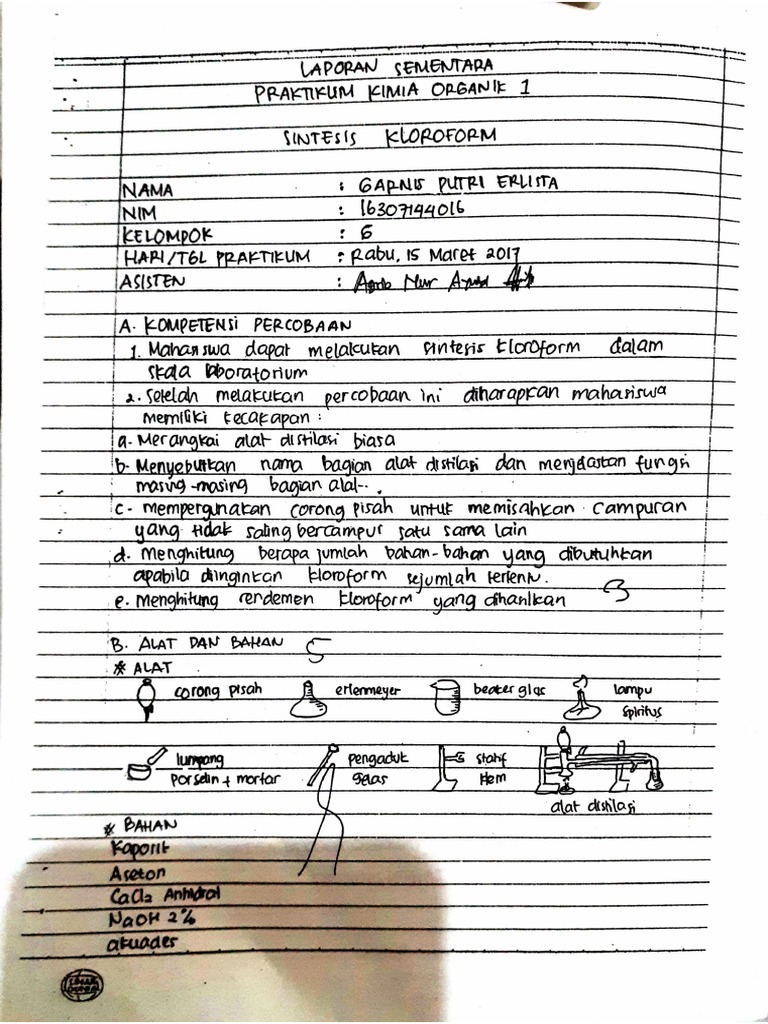 LAPORAN SEMENTARA
PRAKTIKUM KIMIA ORGANIK 1
SINTESIS KLOROFORM
NAMA : GARNIS PUTRI ERLISTA
NIM : 16307144016
KELOMPOK : 6
HARI/TGL PRAKTIKUM : Rabu, 15 Maret 2017
ASISTEN : Nur
A. KOMPETENSI PERCOBAAN
1. Mahasiswa dapat melakukan sintesis kloroform dalam
skala laboratorium
2. Setelah melakukan percobaan ini diharapkan mahasiswa
memiliki kecakapan :
a. Merangkai alat distilasi biasa
b. Menyebutkan nama bagian alat distilasi dan menjelaskan fungsi
masing-masing bagian alat.
c. mempergunakan corong pisah untuk memisahkan campuran
yang tidak saling bercampur satu sama lain
d. Menghitung berapa jumlah bahan-bahan yang dibutuhkan
apabila diinginkan kloroform sejumlah tertentu.
e. Menghitung rendemen kloroform yang dihasilkan 3
B. ALAT DAN BAHAN 5
* ALAT
corong pisah erlenmeyer beaker glas lampu
spiritus
lumpang pengaduk statif
porselin + mortar gelas klem
alat distilasi
* BAHAN
Kaporit
Aseton
CaCl2 Anhidrat
NaOH 2%
akuades